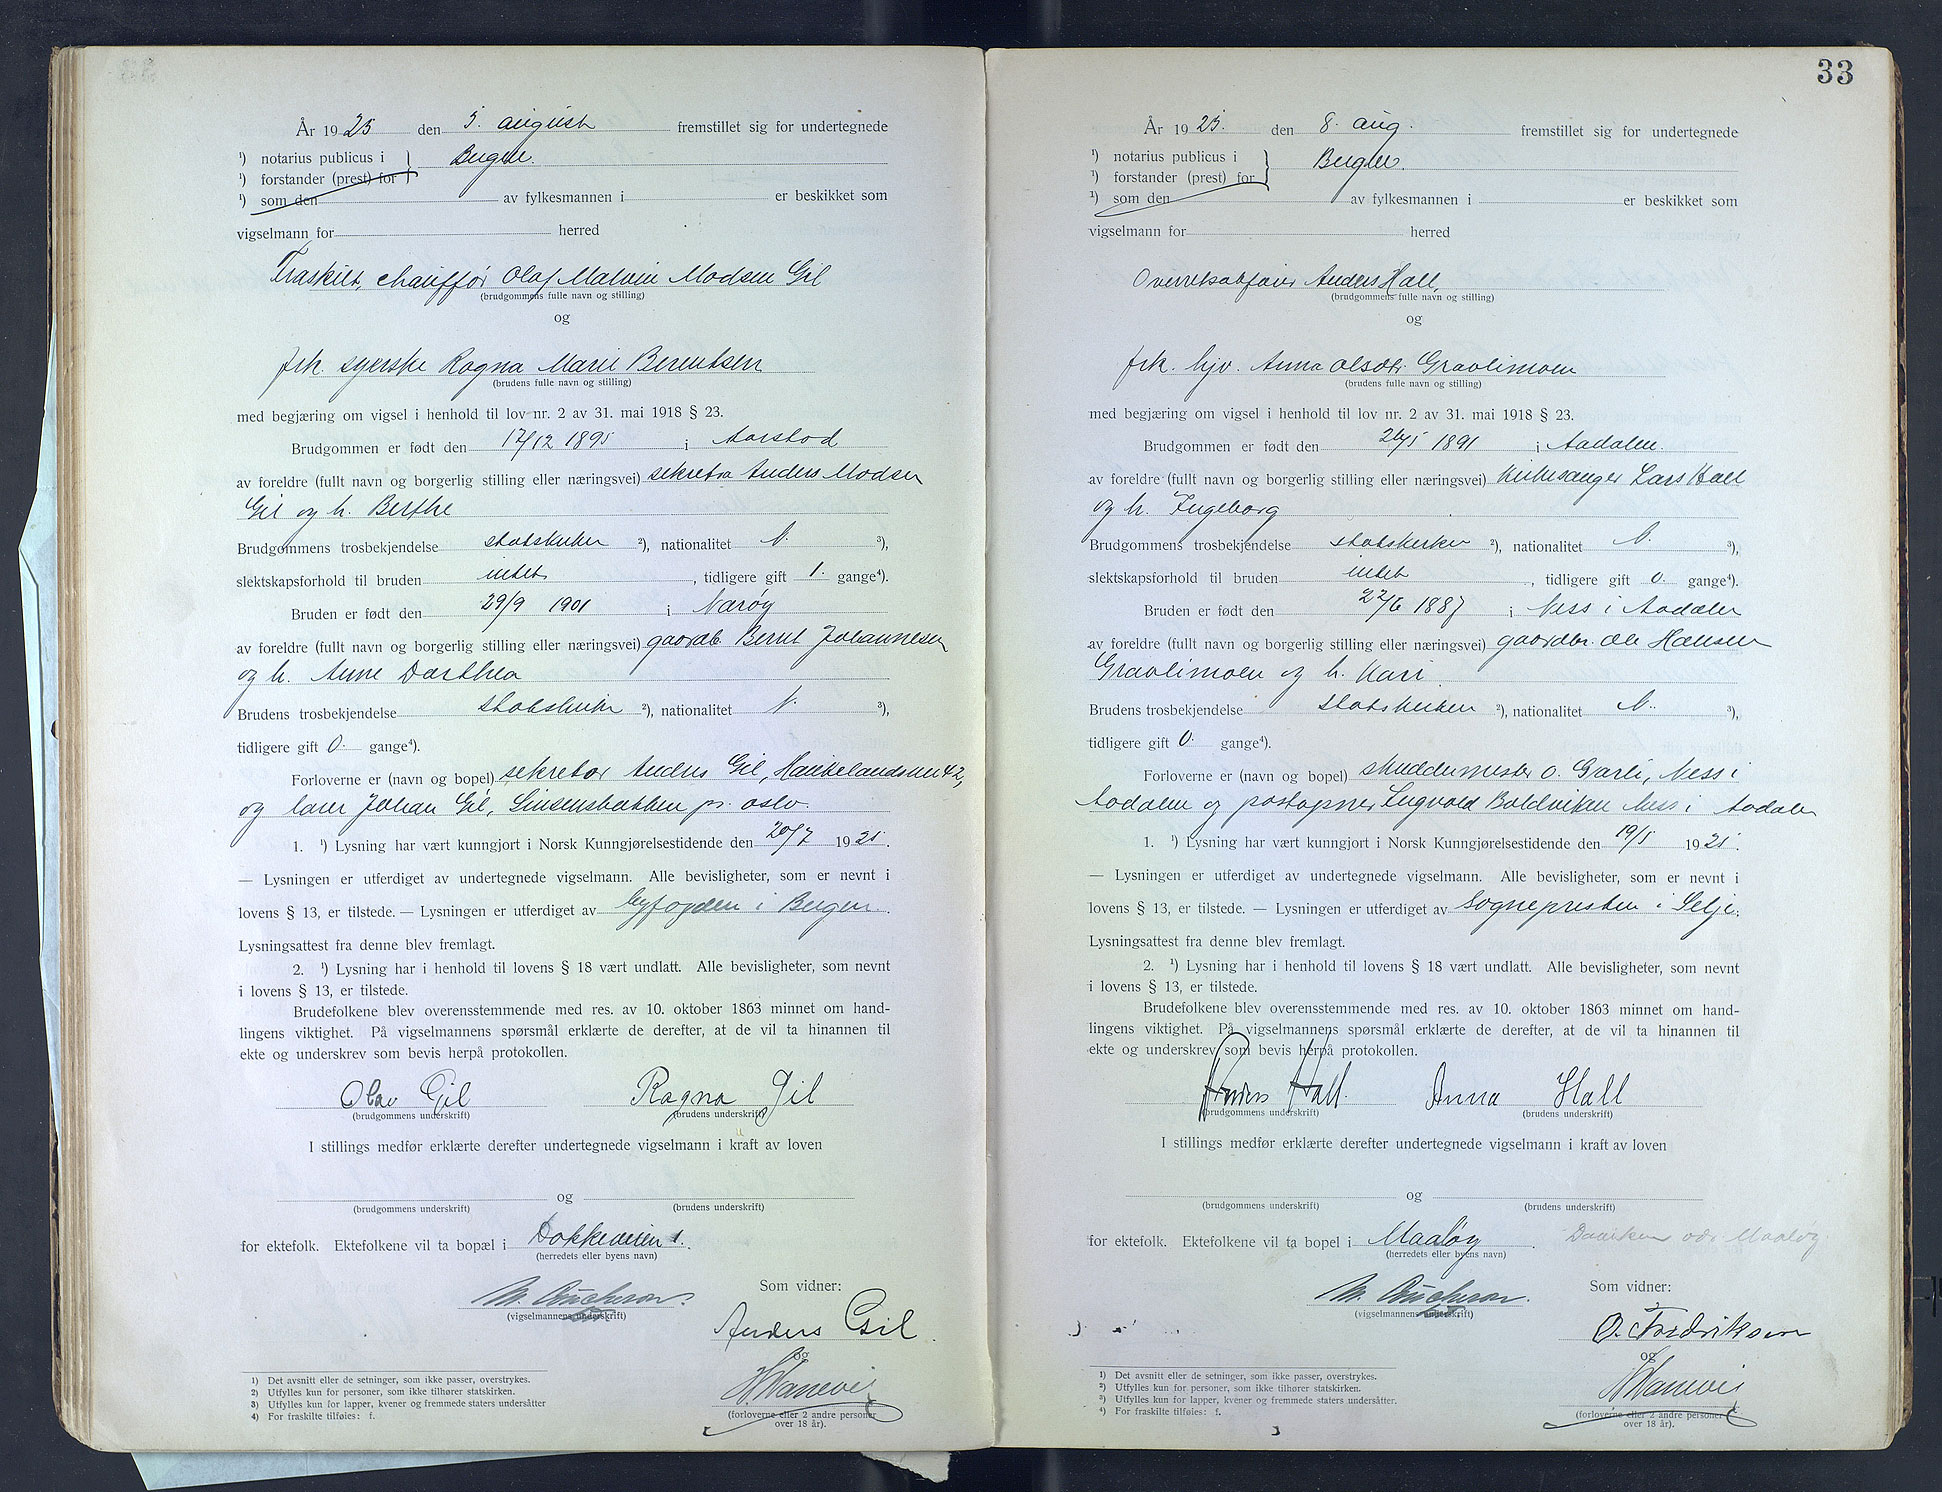 År 1925 den 5. august fremstillet sig for undertegnede
¹) notarius publicus i Bergen.
¹) forstander (prest) for
¹) som den av fylkesmannen i er beskikket som
vigselmann for herred
Fraskilt, chauffør Olaf Malvin Madsen Gil
(brudgommens fulle navn og stilling)
og
frk. syerske Ragna Marie Berentsen
(brudens fulle navn og stilling)
med begjæring om vigsel i henhold til lov nr. 2 av 31. mai 1918 § 23.
Brudgommen er født den 17/12 1895 i Aarstad
av foreldre (fullt navn og borgerlig stilling eller næringsvei) sekretær Anders Madsen
Gil og h. Berthe
Brudgommens trosbekjendelse statskirken ²), nationalitet N. ³),
slektskapsforhold til bruden intet, tidligere gift 1. gange⁴).
Bruden er født den 29/9 1901 i Nærøy
av foreldre (fullt navn og borgerlig stilling eller næringsvei) gaardb. Bernt Johannesen
og h. Anne Dorthea
Brudens trosbekjendelse statskirken ²), nationalitet N. ³),
tidligere gift 0. gange⁴).
Forloverne er (navn og bopel) sekretær Anders Gil, Haukelandsveien 42,
og lærer Johan Gil, Sinsensbakken pr. Oslo.
1. ¹) Lysning har vært kunngjort i Norsk Kunngjørelsestidende den 20/7 1925.
— Lysningen er utferdiget av undertegnede vigselmann. Alle bevisligheter, som er nevnt i
lovens § 13, er tilstede. — Lysningen er utferdiget av byfogden i Bergen.
Lysningsattest fra denne blev fremlagt.
2. ¹) Lysning har i henhold til lovens § 18 vært undlatt. Alle bevisligheter, som nevnt
i lovens § 13, er tilstede.
Brudefolkene blev overensstemmende med res. av 10. oktober 1863 minnet om hand-
lingens viktighet. På vigselmannens spørsmål erklærte de derefter, at de vil ta hinannen til
ekte og underskrev som bevis herpå protokollen.
Olav Gil Ragna Gil
(brudgommens underskrift) (brudens underskrift)
I stillings medfør erklærte derefter undertegnede vigselmann i kraft av loven
og
(brudgommens underskrift) (brudens underskrift)
for ektefolk. Ektefolkene vil ta bopæl i Dokkeveien 1.
(herredets eller byens navn)
Som vidner:
(vigselmannens underskrift)
Anders Gil
og
(forloverne eller 2 andre personer
over 18 år).
1) Det avsnitt eller de setninger, som ikke passer, overstrykes.
2) Utfylles kun for personer, som ikke tilhører statskirken.
3) Utfylles kun for lapper, kvener og fremmede staters undersåtter
4) For fraskilte tilføies: f.
33
År 1925. den 8. aug. fremstillet sig for undertegnede
¹) notarius publicus i Bergen.
¹) forstander (prest) for
¹) som den av fylkesmannen i er beskikket som
vigselmann for herred
Overretssakfører Anders Hall,
(brudgommens fulle navn og stilling)
og
frk. hjv. Anna Olsdtr. Gravlimoen
(brudens fulle navn og stilling)
med begjæring om vigsel i henhold til lov nr. 2 av 31. mai 1918 § 23.
Brudgommen er født den 26/5 1891 i Aadalen.
av foreldre (fullt navn og borgerlig stilling eller næringsvei) kirkesanger Lars Hall
og h. Ingeborg
Brudgommens trosbekjendelse statskirken ²), nationalitet N. ³),
slektskapsforhold til bruden intet, tidligere gift 0. gange⁴).
Bruden er født den 22/6 1887 i Ness i Aadalen
av foreldre (fullt navn og borgerlig stilling eller næringsvei) gaardbr. Ole Hansen
Gravlimoen og h. Kari
Brudens trosbekjendelse statskirken ²), nationalitet N. ³),
tidligere gift 0. gange⁴).
Forloverne er (navn og bopel) O. Garli, Ness i
Aadalen og postaapner Ness i Aadalen
1. ¹) Lysning har vært kunngjort i Norsk Kunngjørelsestidende den 19/5 1925.
— Lysningen er utferdiget av undertegnede vigselmann. Alle bevisligheter, som er nevnt i
lovens § 13, er tilstede. — Lysningen er utferdiget av sognepresten i Selje.
Lysningsattest fra denne blev fremlagt.
2. ¹) Lysning har i henhold til lovens § 18 vært undlatt. Alle bevisligheter, som nevnt
i lovens § 13, er tilstede.
Brudefolkene blev overensstemmende med res. av 10. oktober 1863 minnet om hand-
lingens viktighet. På vigselmannens spørsmål erklærte de derefter, at de vil ta hinannen til
ekte og underskrev som bevis herpå protokollen.
Anders Hall. Anna Hall
(brudgommens underskrift) (brudens underskrift)
I stillings medfør erklærte derefter undertegnede vigselmann i kraft av loven
og
(brudgommens underskrift) (brudens underskrift)
for ektefolk. Ektefolkene vil ta bopel i Maaløy. Maaløy
(herredets eller byens navn)
Som vidner:
(vigselmannens underskrift)
O. Fredriksen
og
(forloverne eller 2 andre personer
over 18 år).
¹) Det avsnitt eller de setninger, som ikke passer, overstrykes.
²) Utfylles kun for personer, som ikke tilhører statskirken.
³) Utfylles kun for lapper, kvener og fremmede staters undersåtter.
⁴) For fraskilte tilføies: f.